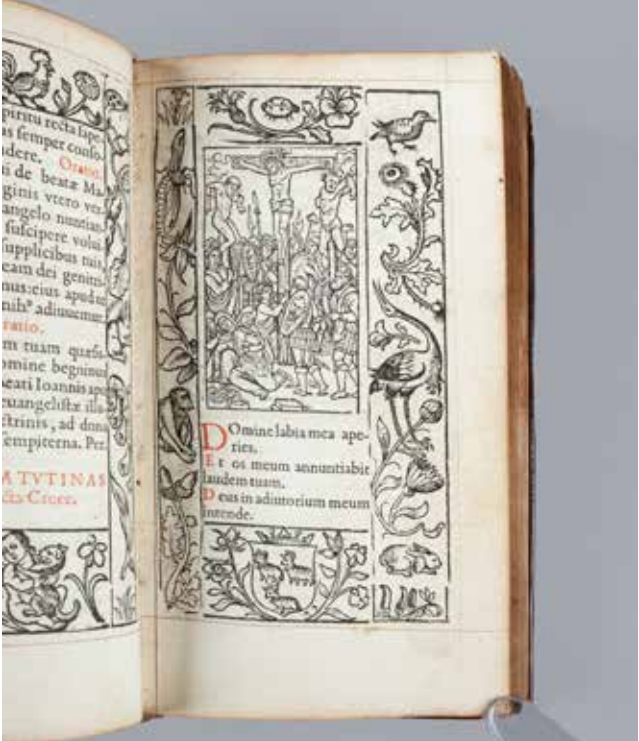 piritu recta sape-
as semper conso-
dere. Oratio.
ui de beatæ Ma-
ginis vtero ver-
angelo nuntian-
suscipere volui-
supplicibus tuis,
eam dei genitri-
mus: eius apud te
adiuuemur.
ratio.
m tuam quæsu-
omine begninus
beati Ioannis apo
euangelistæ illu-
ctrinis, ad dona
empiterna. Per.
ATVTINAS
cta Cruce.
DOmine labia mea ape-
ries.
Et os meum annuntiabit
laudem tuam.
Deus in adiutorium meum
intende.